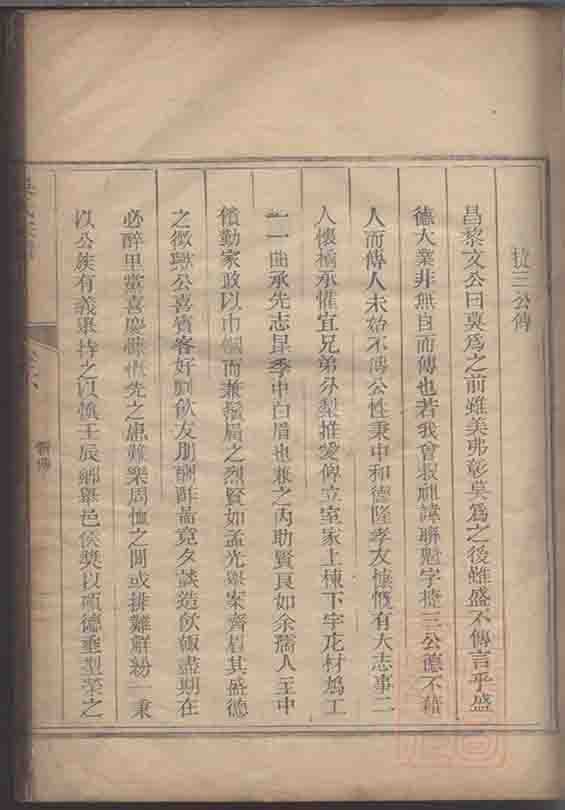 捷三公傳
昌黎文公曰莫爲之前雖美弗彰莫爲之後雖盛不傳言乎盛
德大業非無自而傳也若我會叔祖諱聯魁字捷三公德不藉
人而傳人未始不傳公性秉中和德隆孝友慷慨有大志事二
人懷橘承懽宜兄弟分梨推愛俾立室家上棟下宇庀材鳩工
一一曲承先志昆季中白眉也兼之內助賢良如余孺人主中
饋勤家政以巾幗而兼鬚眉之烈賢如孟光舉案齊眉其盛德
之徵歟公喜賓客好劇飲友朋酬酢晝竟夕談造飲輒盡期在
必醉里黨喜慶慷慨先之患難樂周恤之間或排難解紛一秉
以公族有義舉持之以慎壬辰鄉舉邑侯獎以碩德垂型榮之
吳氏宗譜
卷六